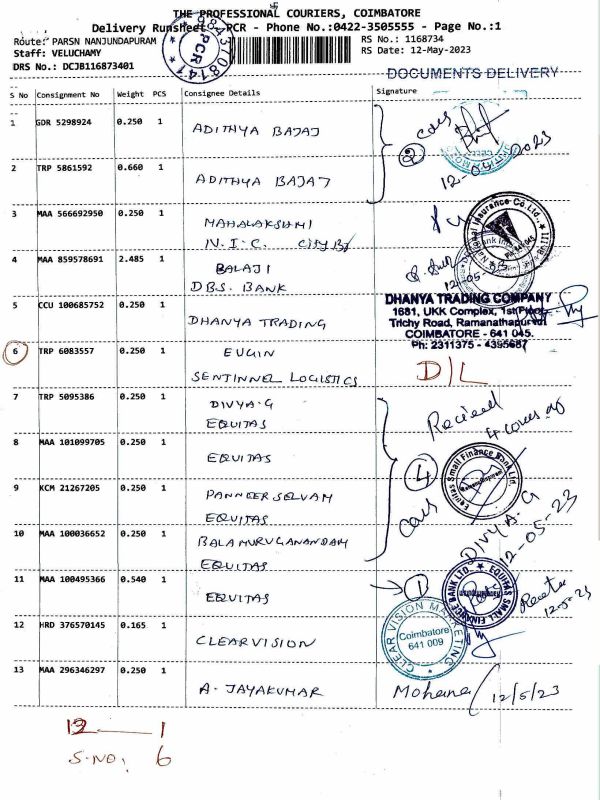 THE PROFESSIONAL COURIERS, COIMBATORE
Delivery Runsheet - PCR - Phone No.:0422-3505555 - Page No.:1
Route: PARSN NANJUNDAPURAM
RS No.: 1168734
Staff: VELUCHAMY
RS Date: 12-May-2023
DRS No.: DCJB116873401
9843708141
PCR
DOCUMENTS DELIVERY
S No Consignment No Weight PCS Consignee Details Signature
1 GDR 5298924 0.250 1 ADITHYA BAJAJ
2 TRP 5861592 0.660 1 ADITHYA BAJAJ
2
12-05-2023
3 MAA 566692950 0.250 1 MAHALAKSHMI
N.I.C. City Br
National Insurance Co.Ltd.,
4 MAA 859578691 2.485 1 BALAJI
DBS. BANK
12-05-23
5 CCU 100685752 0.250 1 DHANYA TRADING
DHANYA TRADING COMPANY
1681, UKK Complex, 1st Floor
Trichy Road, Ramanathapuram
COIMBATORE - 641 045.
Ph: 2311375 - 4395667
6 TRP 6083557 0.250 1 EUGIN
SENTINNEL LOGISTICS
D/L
7 TRP 5095386 0.250 1 DIVYA.G
EQUITAS
8 MAA 101099705 0.250 1 EQUITAS
9 KCM 21267205 0.250 1 PANNEERSELVAM
EQUITAS
10 MAA 100036652 0.250 1 BALAMURUGANANDAM
EQUITAS
4
Received
Equitas Small Finance Bank Ltd.
DIVYA.G
12-05-23
11 MAA 100495366 0.540 1 EQUITAS
1
EQUITAS SMALL FINANCE BANK LTD.
12-5-23
12 HRD 376570145 0.165 1 CLEARVISION
CLEAR VISION MARKETING
Coimbatore
641 009
13 MAA 296346297 0.250 1 A. JAYAKUMAR
Mohana / 12/5/23
12 — 1
S.NO: 6